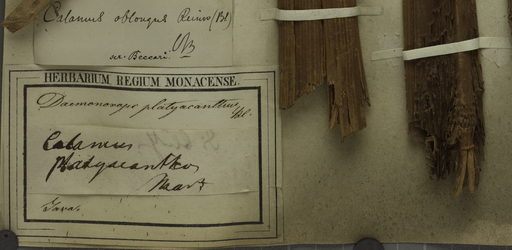 Calamus oblongus Reinw (Bl)
sec. Beccari.
HERBARIUM REGIUM MONACENSE.
Daemonorops platyacanthus
Calamus
platyacanthos
Mart
Java.